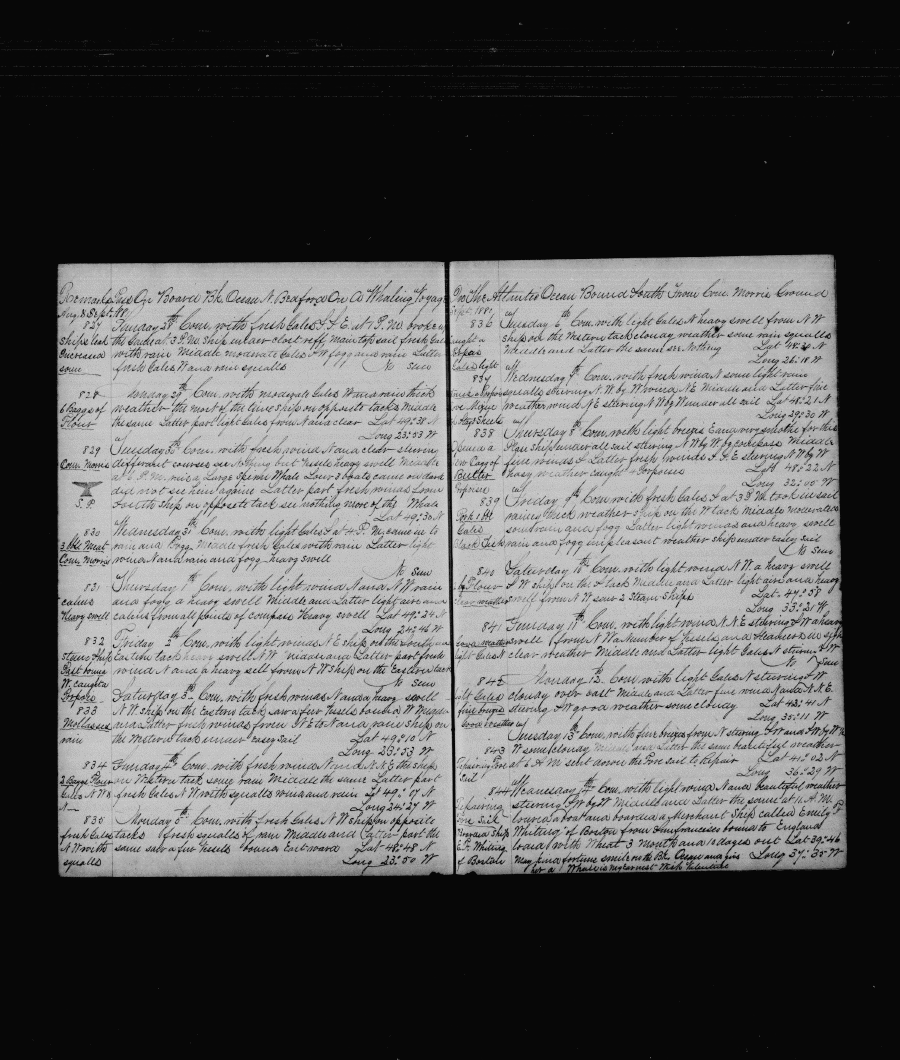 Remarks Era On Board Bk Ocean N. Bedford On A Whaling Voyage
Aug & Sept. 1881
827 Sunday 28th Com. with fresh Gales
ships lead
Increased with rain Middle moderate Gales S W fogg and rain Latter
some fresh Gales W and rain squalls No Sun
828 Monday 29th Com. with moderate Gales W and rain thick
6 Baggs of weather the most of the time ship on opposite tacks Middle
Flour the same Latter part light Gales from N and clear Lat 49:38 N
Long 23:53 W
829 Tuesday 30th Com. with fresh wind N and clear steering
Com. Morris different courses see Nothing but Vessels heavy swell Middle
at 6 P. M. rais a Large Sperm Whale Lower 3 boats came on dark
S. P. did not see him again Latter part fresh winds some
South ship on opposite tack see nothing more of the Whale
Lat 49:30 N
830 Wednesday 31st Com. with light Gales S at 4 P. M. came in to
3 Bbls Meat rain and fogg Middle fresh Gales with rain Latter light
Com. Morris wind N and rain and fogg heavy swell
No Sun
831 Thursday 1st Com. with light wind N and N. W. rain
calms and foggy a heavy swell Middle and Latter light airs and
Heavy swell calms from all points of compass Heavy swell Lat 49:24 N
Long 24:46 W
832 Friday 2nd Com. with light winds N. E. ship on the
steam ship Eastern tack heavy swell N. W. Middle and Latter part fresh
East bound wind N and a heavy sell from N. W. ship on the Eastern tack
W. caught a No Sun
Porpois Saturday 3rd Com. with fresh winds N and a heavy swell
833 N. W. ship on the Eastern tack saw a few Vessels bound W Middle
Mollasses and Latter fresh winds from N. E to N and rain ship on
rain the Western tack under easey sail Lat 49:10 N
Long 23:53 W
834 Sunday 4th Com. with fresh wind N and N. N. E the ship
2 Baggs Flour on Western tack some rain Middle the same Latter part
Gales N W & fresh Gales N. W with squalls wind and rain Lat 49:07 N
N Long 24:27 W
835 Monday 5th Com. with fresh Gales N. W ship on opposite
fresh Gales tacks fresh squalls of rain Middle and Latter part the
N. W with same saw a few Vessels bound Eastward Lat 48:48 N
squalls Long 23:50 W
Ocean Bound South From Com. Morris Ground
Sept. 1881
836 Tuesday 6th Com. with light Gales N heavy swell from N. W
caught a ship on the Western tack cloudy weather some rain squalls
Porpas Middle and Latter the same see Nothing Lat 48:24 N
Gales light Long 26:18 W
837 Wednesday 7th Com. with fresh wind N some light rain
squalls steering N. W. by W. wind N. E Middle and Latter fine
weather wind N. E steering N W by W under all sail Lat 48:21 N
Long 29:30 W
838 Thursday 8th Com. with light breeze E and very smothe for this
Opened a Plase ship under all sail stering N. W by W. by compass Middle
New Cagg of fine winds S Latter fresh winds S. S. E steering N. W by W
Butter hasy weather caught 1 Porpoise Lat 48:22 N
Porpoise Long 32:00 W
839 Friday 9th Com. with fresh Gales S at 3 P. M. took in sail
rainey thick weather ship on the W tack Middle moderated
Gales some rain and fogg Latter light winds and heavy swell
rain and fogg unpleasant weather ship under easey sail
No Sun
840 Saturday 10th Com. with light wind N. W. a heavy swell
Flour S. W ship on the S tack Middle and Latter light airs and heavy
swell from N. W saw 2 Steam Ships Lat. 47:58
Long 33:21 W
841 Sunday 11th Com. with light wind N. E steering S. W a heavy
swell from N. W a Number of Vessels and Steamers in sight
light Gales N clear weather Middle and Latter light Gales N steering S. W
No Sun
842 Monday 12 Com. with light Gales N stering S. W
light Gales cloudy over cast Middle and Latter fine wind N and N. N. E.
fine breeze stering S. W good weather some cloudy Lat 43:41 N
Good weather Long. 35:11 W
Tuesday 13th Com. with fine breeze from N stering S. W and S. W. by W
843 W some cloudy Middle and Latter the same beautiful weather
repairing Fore at 6 A. M sent down the Fore sail to repair Lat 41:02 N
Sail Long 36:29 W
844 Wednesday 14th Com. with light wind N and beautiful weather
Repairing stering S. W by W Middle and Latter the same at 11 A. M.
Fore Sail lowered a boat and boarded a Merchant Ship called Emily F.
Boarded Ship Whiting of Boston from Sanfrancisco bound to England
E. F. Whiting load with Wheat 3 Month and 10 dayes out Lat 39:46
of Boston May find fortune smile on the Bk. Ocean and give Long 37:35 W
for a Whale is my earnest Wish